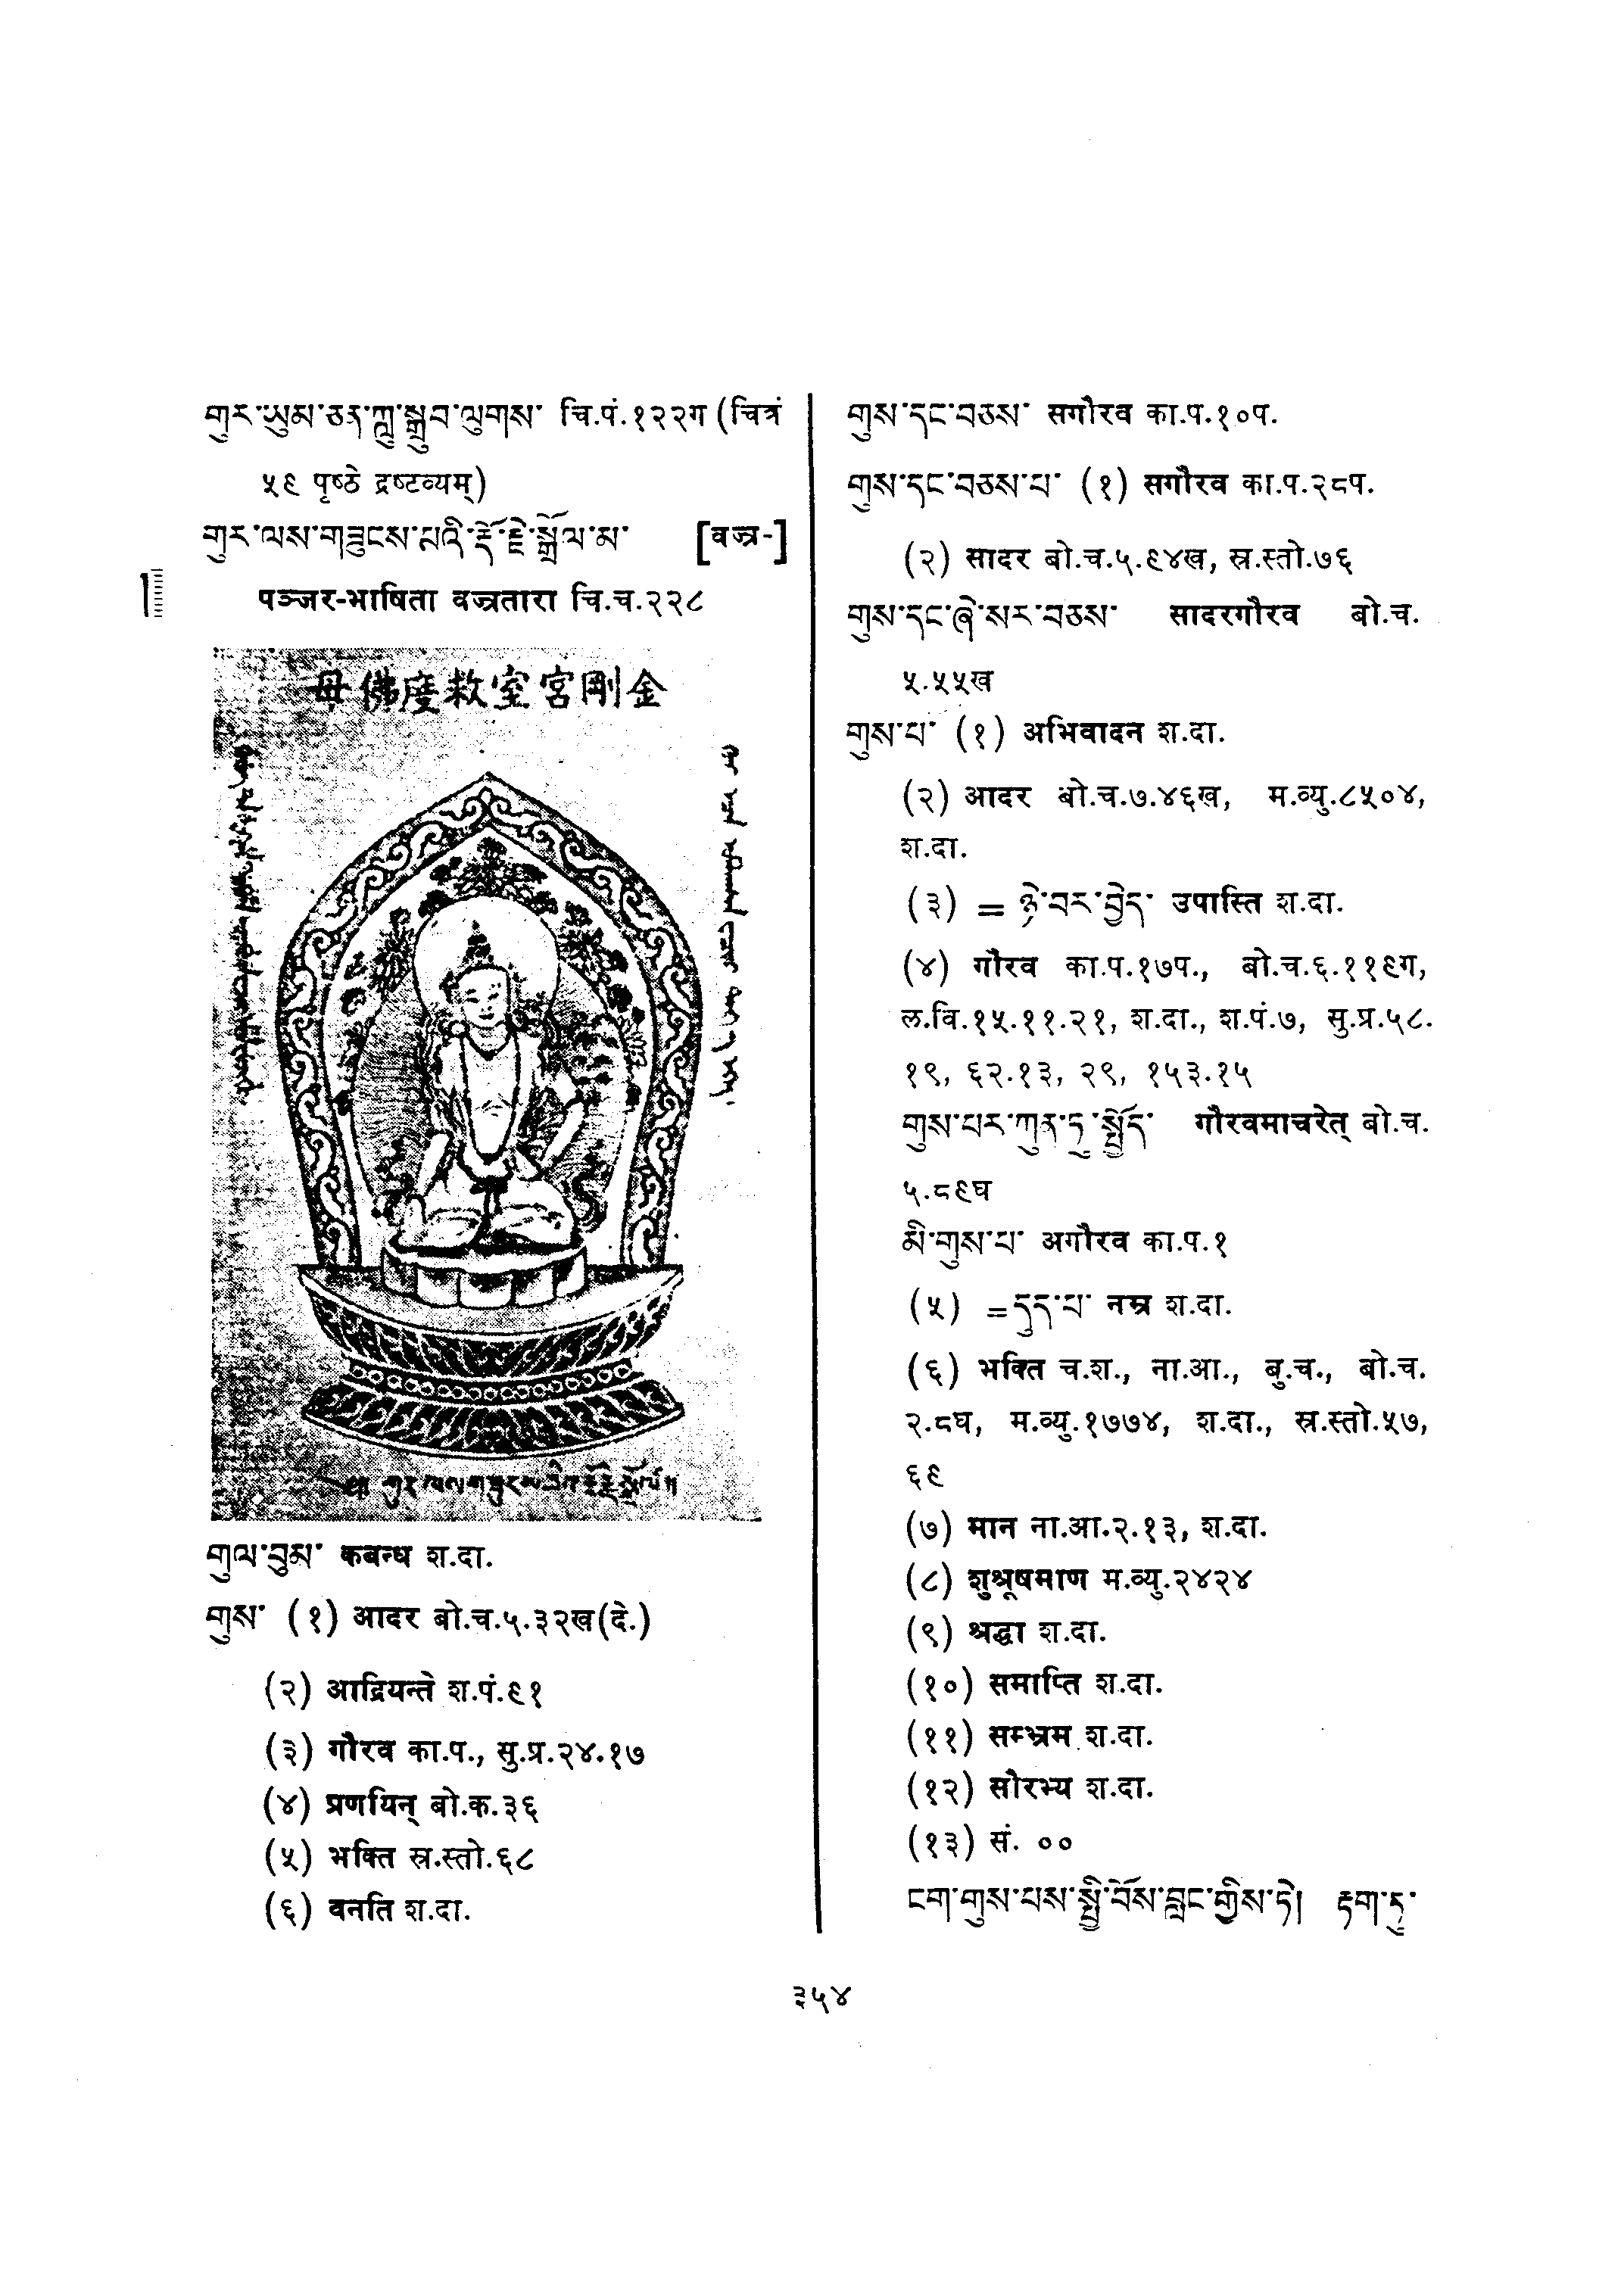 གུར་ཡུམ་ཅན་ཀླུ་སྒྲུབ་ལུགས་ चि.पं.१२२ग (चित्रं
५९ पृष्ठे द्रष्टव्यम्)
གུར་ལས་གཟུངས་པའི་རྡོ་རྗེ་སྒྲོལ་མ་ [वज्र-]
पञ्जर-भाषिता वज्रतारा चि.च.२२८
母佛度救室宮剛金
གུལ་བུམ་ कबन्ध श.दा.
གུས་ (१) आदर बो.च.५.३२ख(दे.)
(२) आद्रियन्ते श.पं.९१
(३) गौरव का.प., सु.प्र.२४.१७
(४) प्रणयिन् बो.क.३६
(५) भक्ति स्र.स्तो.६८
(६) वनति श.दा.
གུས་དང་བཅས་ सगौरव का.प.१०प.
གུས་དང་བཅས་པ་ (१) सगौरव का.प.२८प.
(२) सादर बो.च.५.९४ख, स्र.स्तो.७६
གུས་དང་ཞེ་སར་བཅས་ सादरगौरव बो.च.
५.५५ख
གུས་པ་ (१) अभिवादन श.दा.
(२) आदर बो.च.७.४६ख, म.व्यु.८५०४,
श.दा.
(३) = ཉེ་བར་བྱེད་ उपास्ति श.दा.
(४) गौरव का.प.१७प., बो.च.६.११९ग,
ल.वि.१५.११.२१, श.दा., श.पं.७, सु.प्र.५८.
१९, ६२.१३, २९, १५३.१५
གུས་པར་ཀུན་ཏུ་སྤྱོད་ गौरवमाचरेत् बो.च.
५.८९घ
མི་གུས་པ་ अगौरव का.प.१
(५) =དུད་པ་ नम्र श.दा.
(६) भक्ति च.श., ना.आ., बु.च., बो.च.
२.८घ, म.व्यु.१७७४, श.दा., स्र.स्तो.५७,
६९
(७) मान ना.आ.२.१३, श.दा.
(८) शुश्रूषमाण म.व्यु.२४२४
(९) श्रद्धा श.दा.
(१०) समाप्ति श.दा.
(११) सम्भ्रम श.दा.
(१२) सौरभ्य श.दा.
(१३) सं. ००
ངག་གུས་པས་སྤྱི་བོས་བླང་གྱིས་ཏེ། རྟག་ཏུ་
३५४